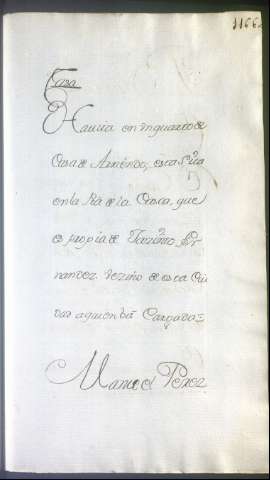 1166
Casa
Havita en un quarto de
Casa de Arriendo, esta situa
en la Rã de la Cava, que
es propia de Jazinto Fr
nandez Vezino de esta Ciu
dad aquien bã Cargada =
Manuel Perez